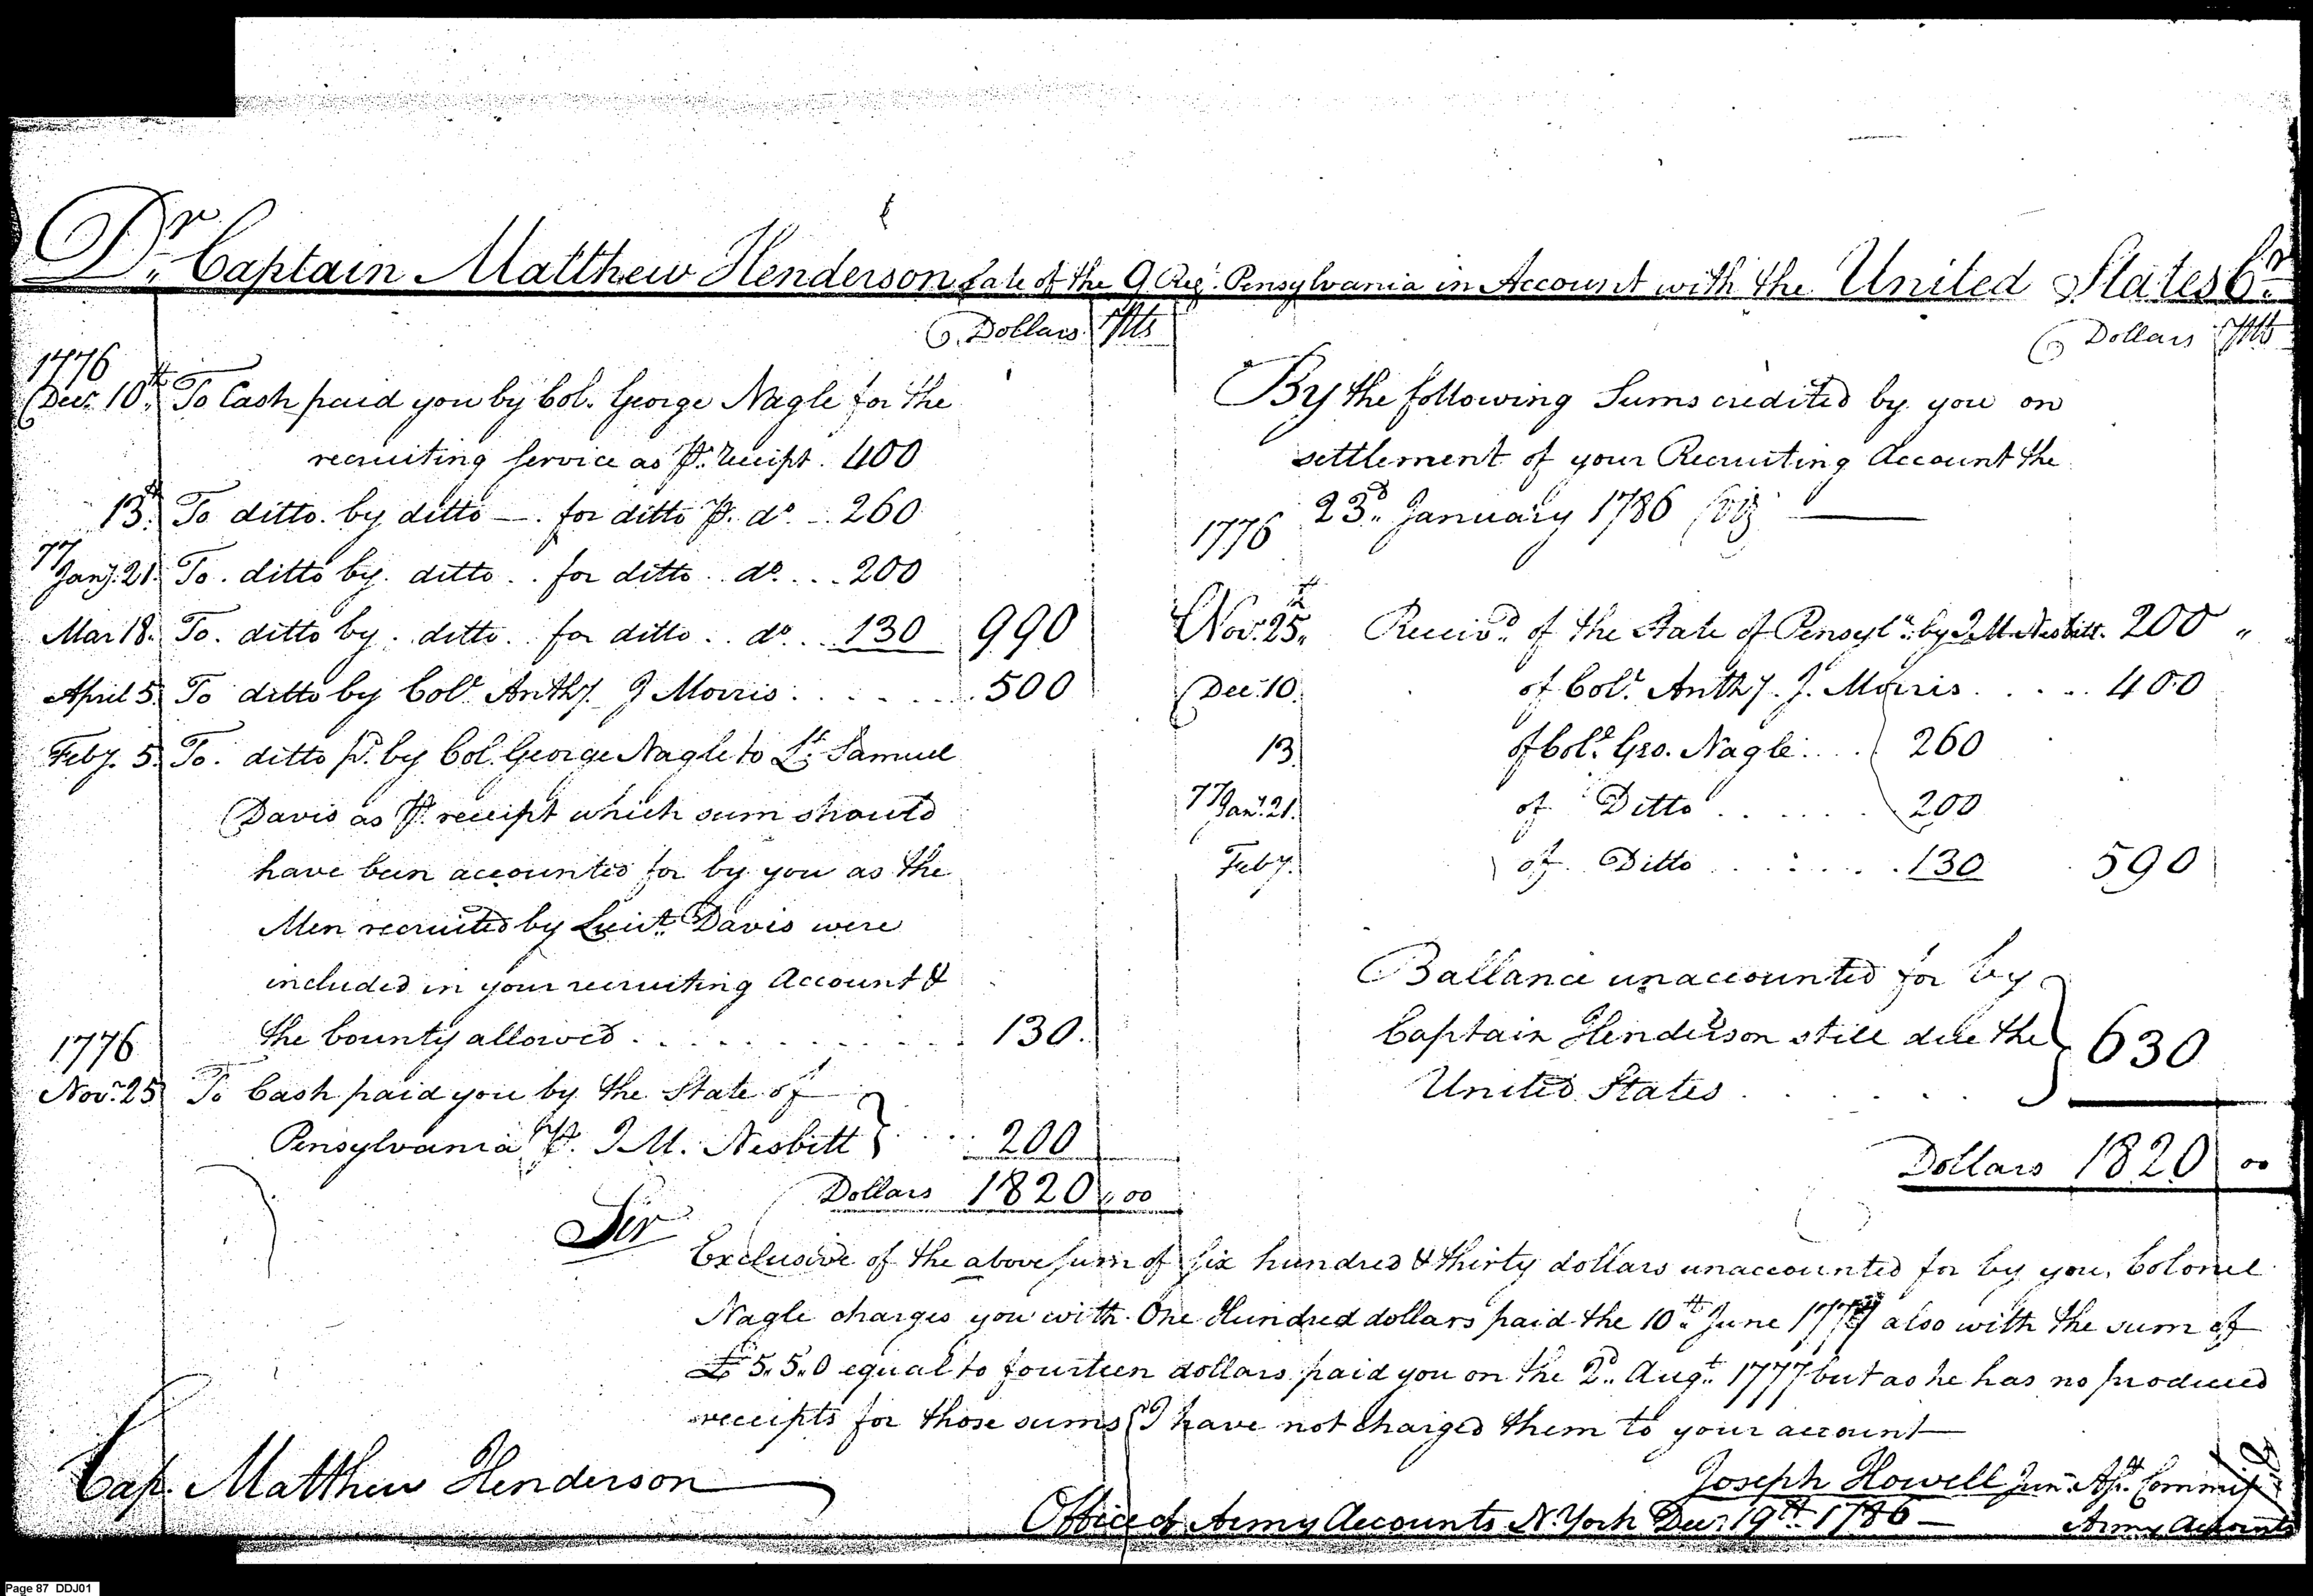 Dr. Captain Matthew Henderson Late of the 9 Regt. Pensylvania in Account with the United States Cr.
Dollars 90ths
1776
Decr. 10th. To Cash paid you by Col. George Nagle for the
recruiting service as Pr. receipt. 400
13th. To ditto. by ditto — . for ditto Pr. do. .. 260
77
Jany. 21. To. ditto by. ditto .. for ditto .. do. ... 200
Mar 18. To. ditto by. ditto. .. for ditto .. do. .. 130 990
April 5. To ditto by Colo. Anthy. J Morris . . . . . . . 500
Feby. 5. To. ditto pd. by Col. George Nagle to Lt. Samuel
Davis as Pr. receipt which sum should
have been accounted for by you as the
Men recruited by Lieut. Davis were
included in your recruiting Account &
the bounty allowed . . . . . . . . . . . . 130.
1776
Novr. 25 To Cash paid you by the State of
Pensylvania Pr. J. M. Nesbitt } . . . . 200
Dollars 1820,,00
Dollars 90ths
By the following Sums credited by you on
settlement of your Recruiting Account the
23d. January 1786 Viz —
1776
Nov. 25th. Receivd. of the State of Pensyla. by J. M. Nesbitt. 200 ,,
Dec. 10. of Colo. Anthy. J. Morris . . . . . 400
13. of Colo. Geo. Nagle . . . . 260
77
Jany. 21. of Ditto . . . . . . 200
Feby. of Ditto . . . . . . . 130 590
Ballance unaccounted for by
Captain Henderson still due the } 630
United States . . . . . .
Dollars 1820 00
Sir
Exclusive of the above sum of six hundred & thirty dollars unaccounted for by you, Colonel
Nagle charges you with One Hundred dollars paid the 10th. June 1777 also with the sum of
£5.,5.,0 equal to fourteen dollars paid you on the 2d. Augt. 1777 but as he has no produced
receipts for those sums I have not charged them to your account —
Cap. Matthew Henderson
Joseph Howell Junr. Asst. Commisr.
Army Accounts
Office of Army Accounts N. York Decr. 19th. 1786 —
Page 87 DDJ01